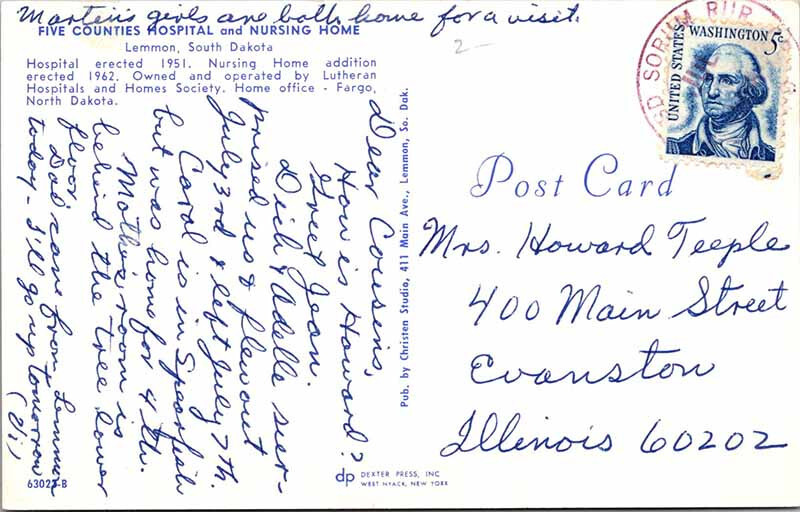 Martin's girls are both home for a visit.
FIVE COUNTIES HOSPITAL and NURSING HOME
Lemmon, South Dakota
Hospital erected 1951. Nursing Home addition
erected 1962. Owned and operated by Lutheran
Hospitals and Homes Society. Home office - Fargo,
North Dakota.
Dear Cousins,
How is Howard?
Greet Jean.
Dick & Adelle sur-
prised us & flew out
July 3rd & left July 7th.
Carol is in Spearfish
but was home for 4th.
Mother's room is
behind the tree lower
floor.
Dad came from Lemmon
today - I'll go up tomorrow
63023-B
Pub. by Christen Studio, 411 Main Ave., Lemmon, So. Dak.
dp DEXTER PRESS, INC
WEST NYACK, NEW YORK
2-
SORUM RUR
UNITED STATES
WASHINGTON 5c
Post Card
Mrs. Howard Teeple
400 Main Street
Evanston
Illinois 60202